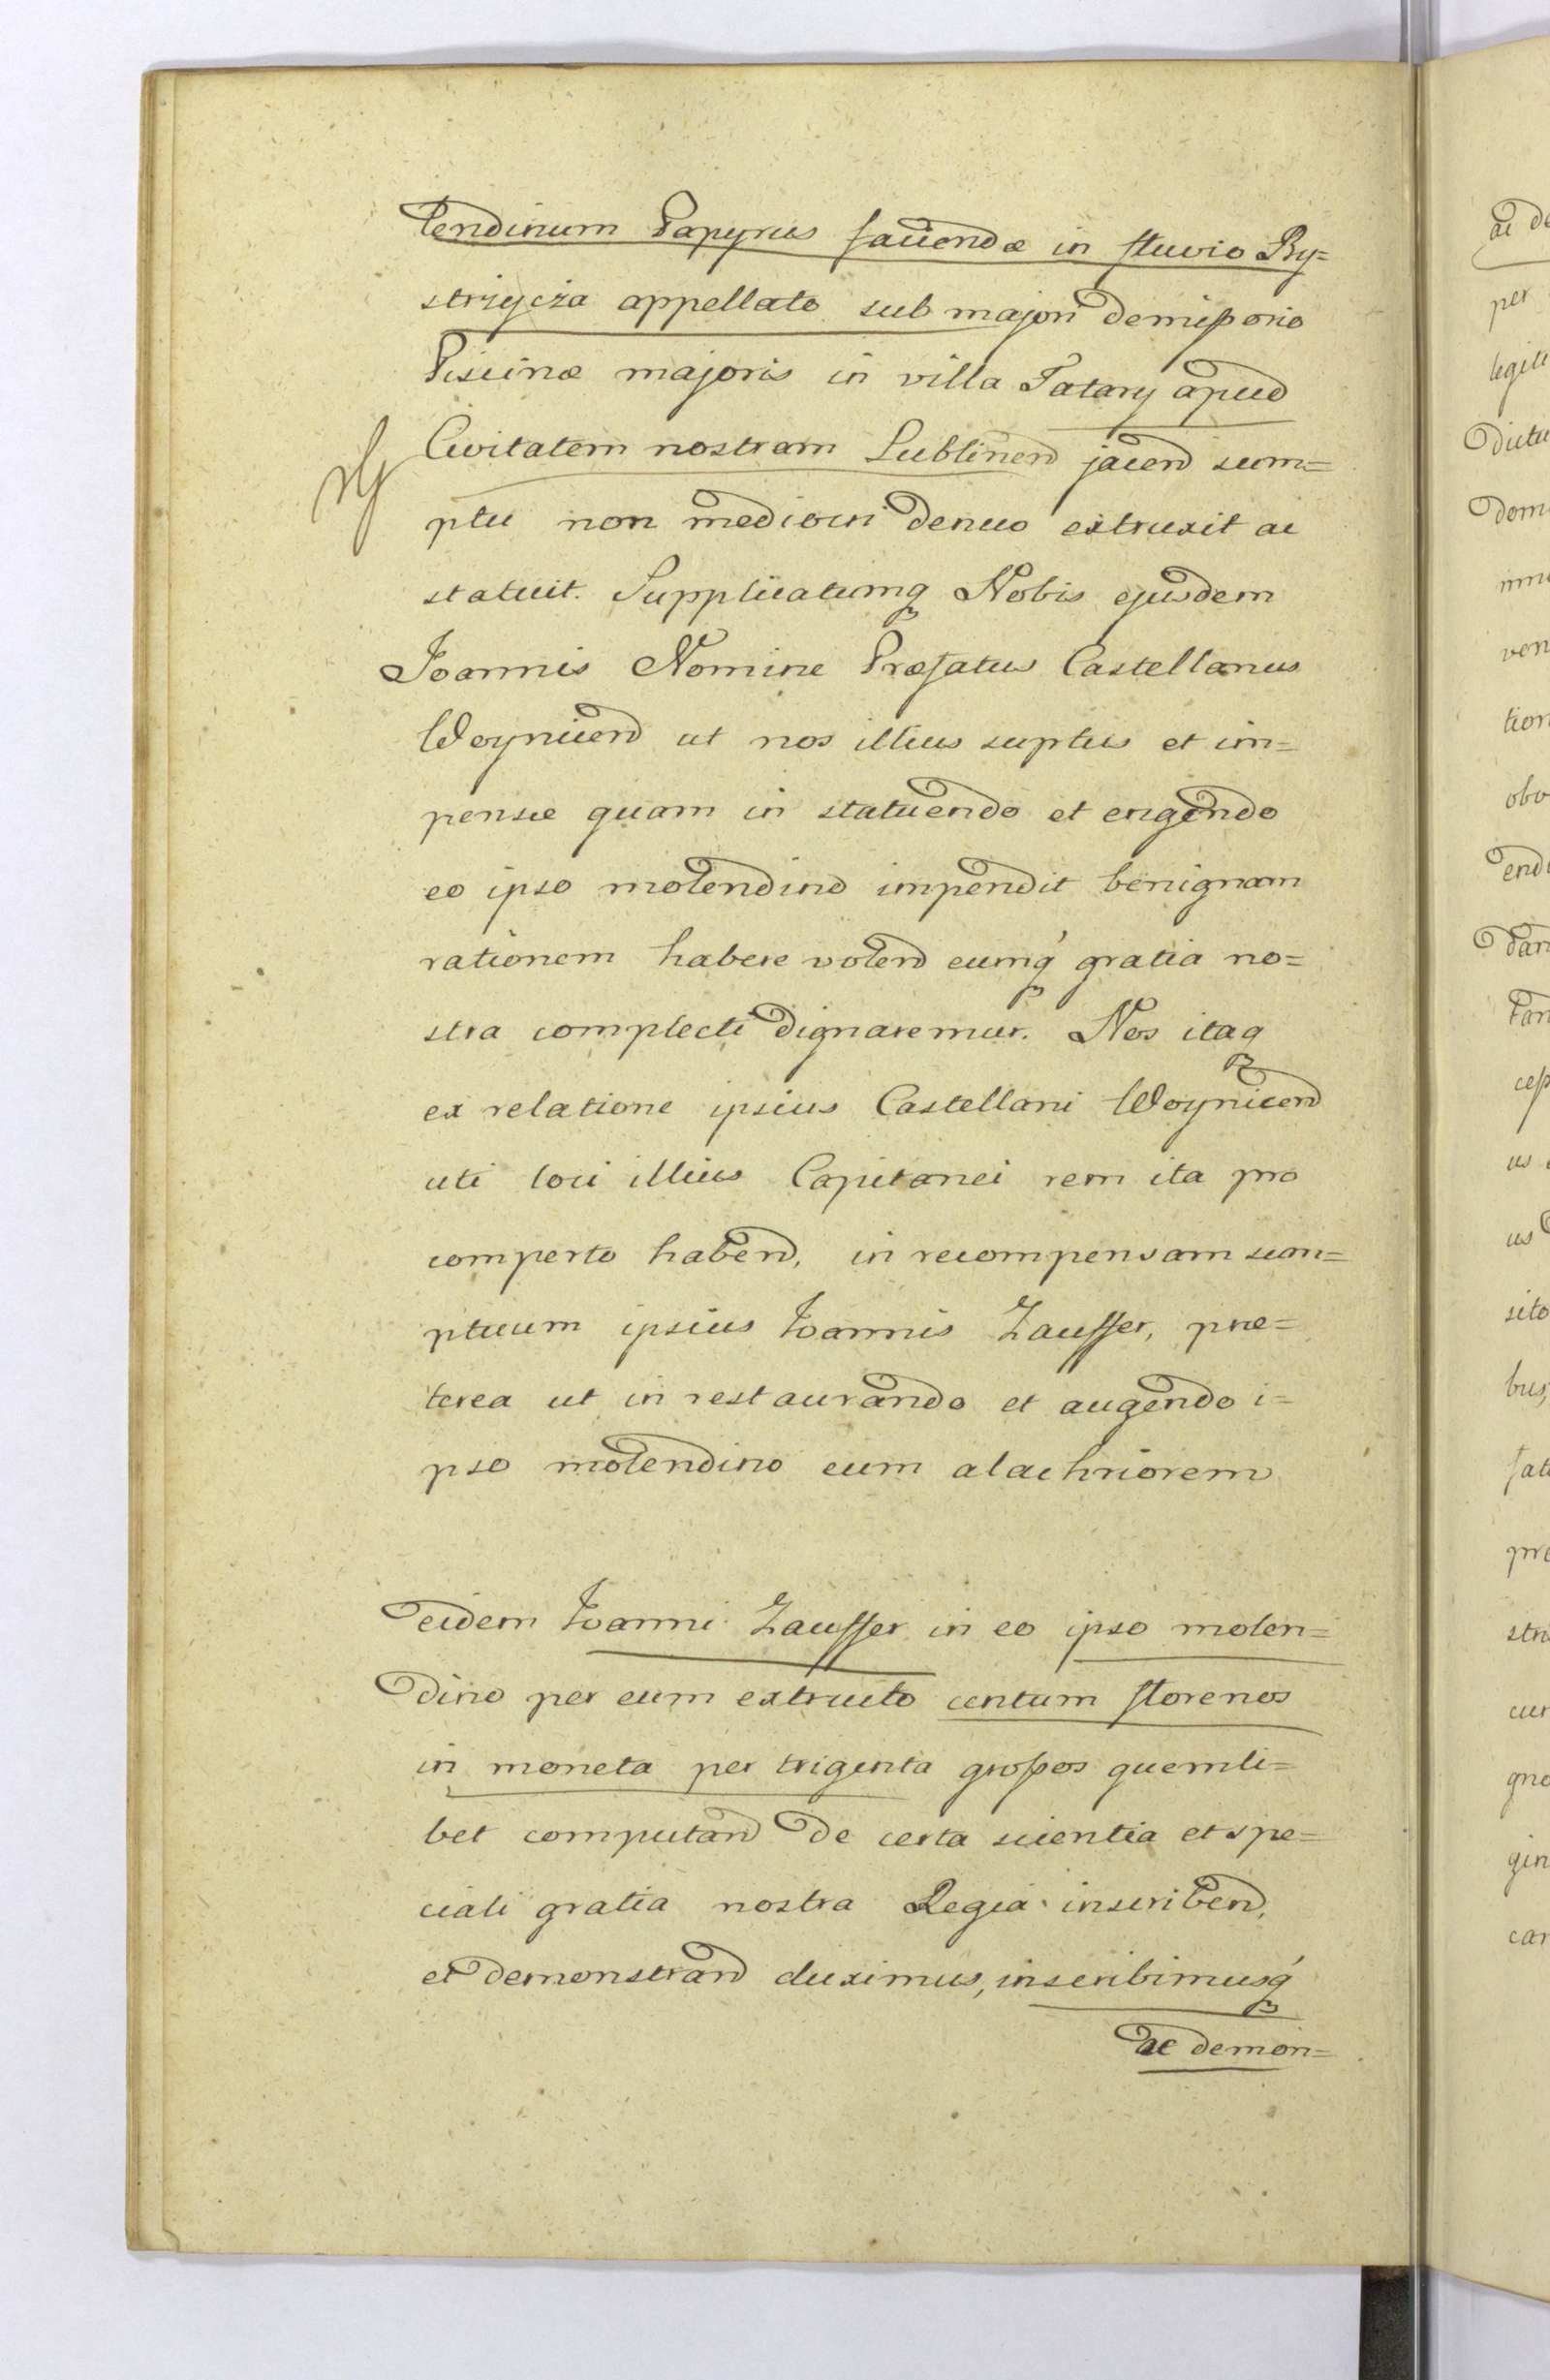 lendinum Papyrus faciendæ in fluvio By=
strzycza appellato sub majori demissorio
Piscinæ majoris in villa Tatary apud
Civitatem nostram Lublinen jacen sum=
ptu non mediocri denuo extruxit ac
statuit. Supplicatumq Nobis ejusdem
Joannis Nomine Præfatus Castellanus
Woynicen ut nos illius suptus et im=
pensæ quam in statuendo et erigendo
eo ipso molendino impendit benignam
rationem habere volen eumq gratia no=
stra complecti dignaremur. Nos itaq
ex relatione ipsius Castellani Woynicen
uti loci illius Capitanei rem ita pro
comperto haben, in recompensam sum=
ptuum ipsius Joannis Zausser, præ=
terea ut in restaurando et augendo i=
pso molendino eum alachriorem
eidem Joanni Zausser in eo ipso molen=
dino per eum extructo centum florenos
in moneta per triginta grossos quemli=
bet computan de certa scientia et spe=
ciali gratia nostra Regia inscriben,
et demonstran duximus, inscribimusq
ac demon=
ac de
per
dictu
dom
ven
tion
obv
end
cess
us
us
sito
bus,
pre
str
cur
gno
gin
car